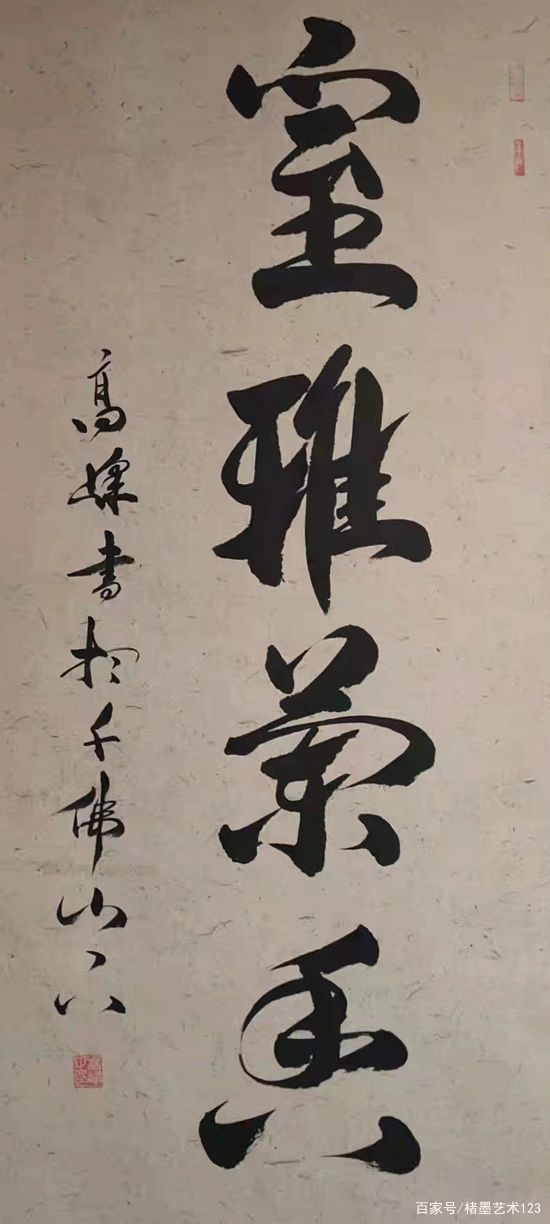 室雅兰香
高㛄书于千佛山下
百家号/楮墨艺术123